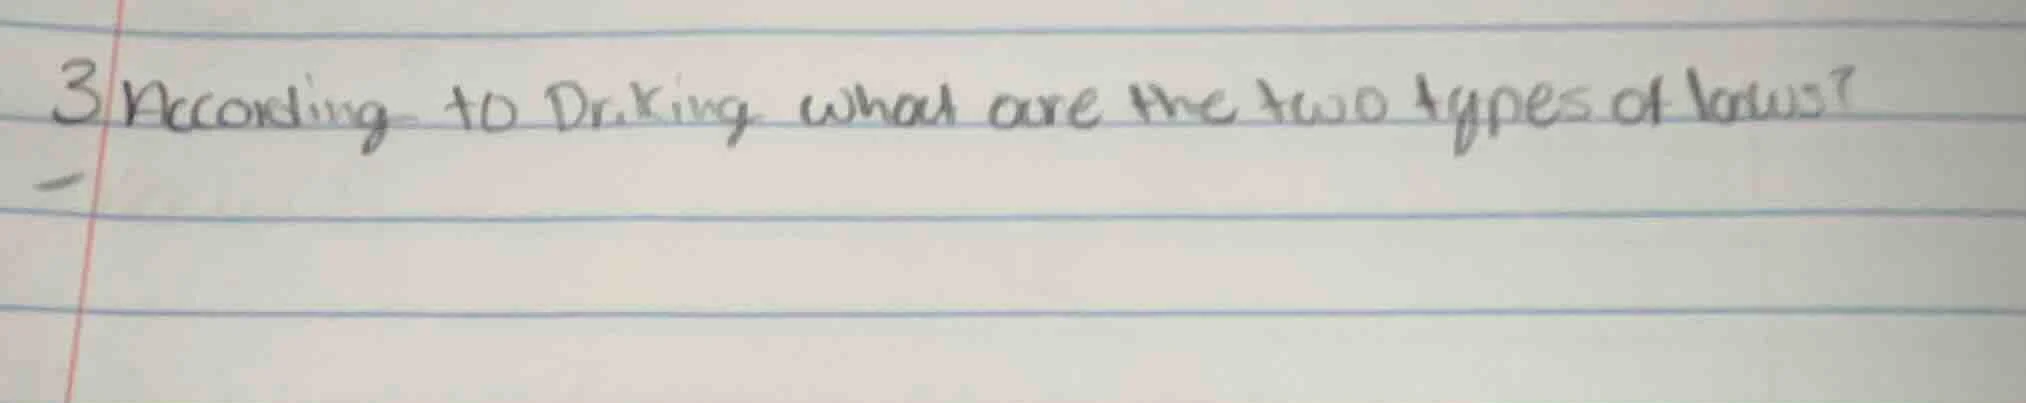 3 According to Dr.King what are the two types of laws?
-